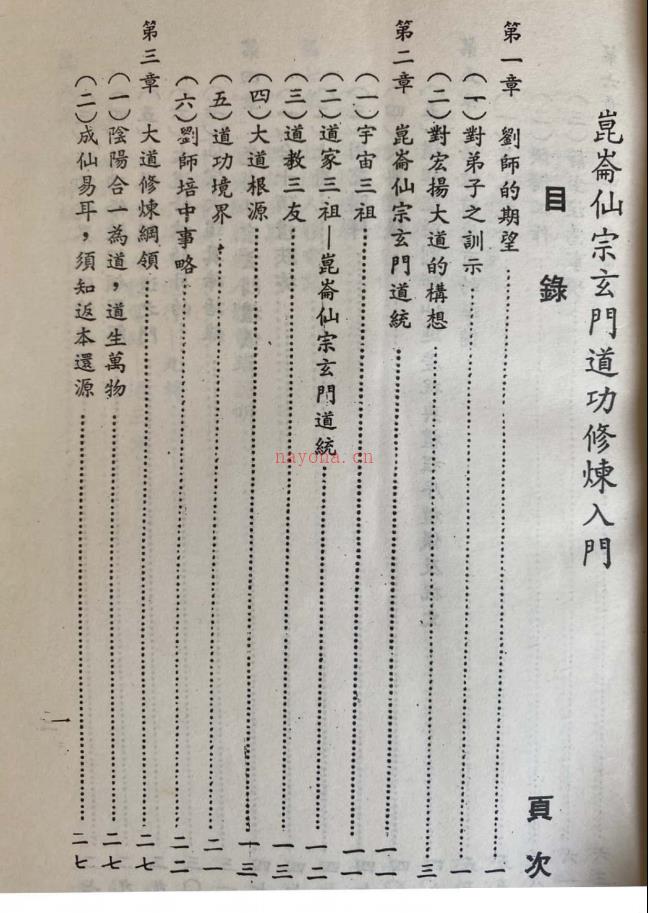 崑崙仙宗玄門道功修煉入門
目錄 頁次
第一章 劉師的期望……一
(一)對弟子之訓示……一
(二)對宏揚大道的構想……三
第二章 崑崙仙宗玄門道統……一一
(一)宇宙三祖……一一
(二)道家三祖—崑崙仙宗玄門道統……一二
(三)道教三友……一三
(四)大道根源……一三
(五)道功境界……二一
(六)劉師培中事略……二二
第三章 大道修煉綱領……二七
(一)陰陽合一為道，道生萬物……二七
(二)成仙易耳，須知返本還源……二七
一
nayona.cn